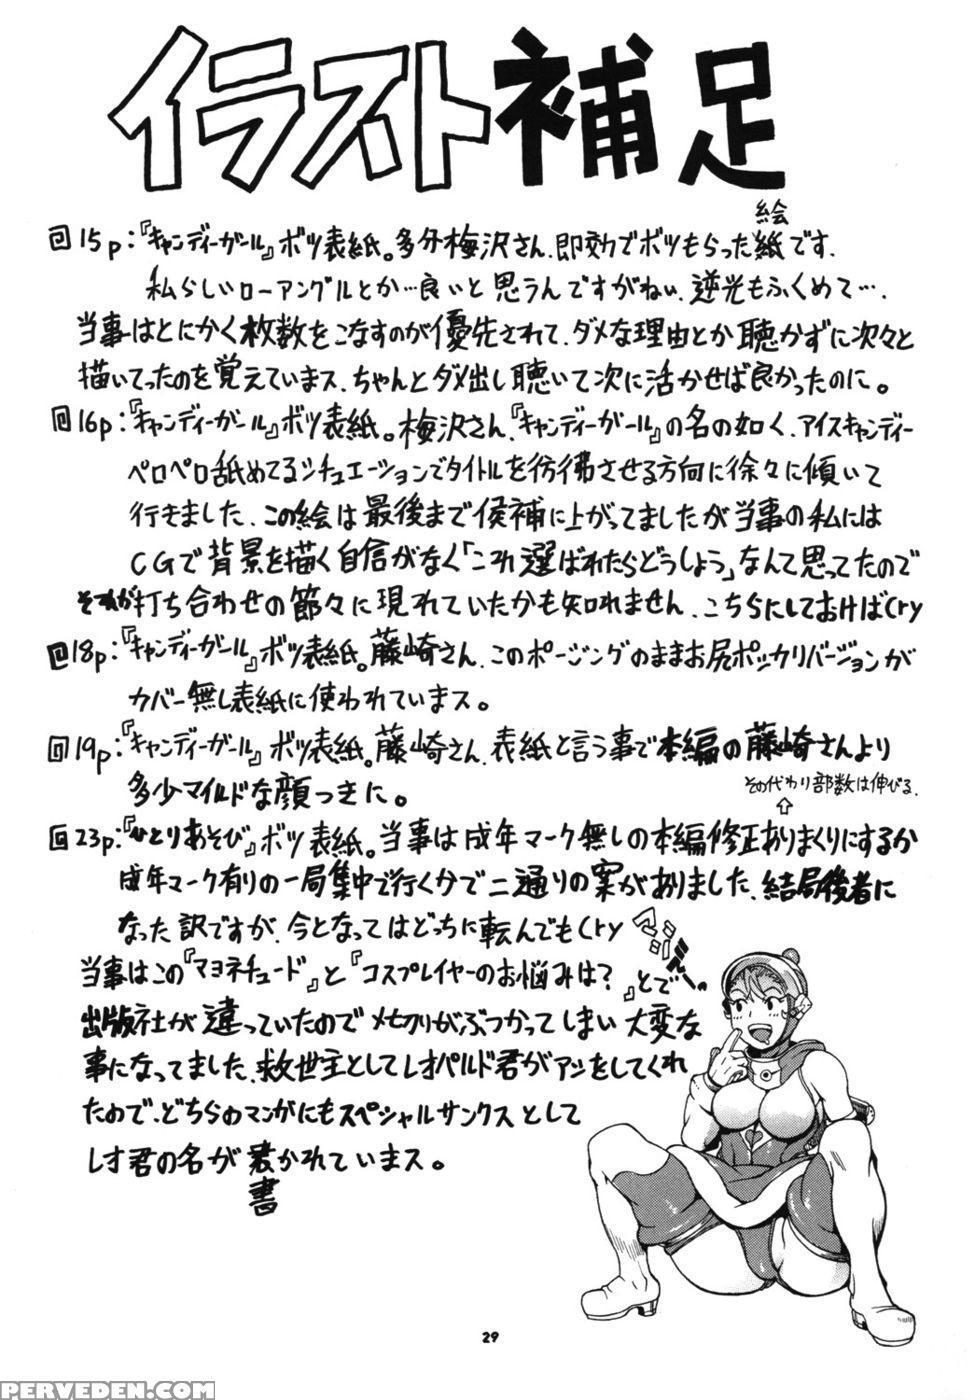 イラスト補足
絵
回15p:『キャンディーガール』ボツ表紙。多分梅沢さん、即効でボツもらった紙です、
私らしいローアングルとか…良いと思うんですがねぃ、逆光もふくめて…、
当事はとにかく枚数をこなすのが優先されて、ダメな理由とか聴かずに次々と
描いてったのを覚えていまス、ちゃんとダメ出し聴いて次に活かせば良かったのに。
回16p:『キャンディーガール』ボツ表紙。梅沢さん、『キャンディーガール』の名の如く、アイスキャンディー
ペロペロ舐めてるシチュエーションでタイトルを彷彿させる方向に徐々に傾いて
行きました、この絵は最後まで候補に上がってましたが当事の私には
CGで背景を描く自信がなく「これ選ばれたらどうしよう」なんて思ってたので
それが打ち合わせの節々に現れていたかも知れません、こちらにしておけばCry
回18p:『キャンディーガール』ボツ表紙。藤崎さん、このポージングのままお尻ポッカリバージョンが
カバー無し表紙に使われていまス。
回19p:『キャンディーガール』ボツ表紙。藤崎さん、表紙と言う事で本編の藤崎さんより
多少マイルドな顔つきに。
その代わり部数は伸びる、
⇧
回23p:『ひとりあそび』ボツ表紙。当事は成年マーク無しの本編修正ありまくりにするか
成年マーク有りの一局集中で行く分で二通りの案がありました、結局後者に
なった訳ですが、今となってはどっちに転んでもCry
当事はこの『マヨネチュード』と『コスプレイヤーのお悩みは？』とで
出版社が違っていたのでメセクリがぶつかってしまい大変な
事になってました、救世主としてレオパルド君がアシをしてくれ
たので、どちらのマンガにもスペシャルサンクスとして
レオ君の名が書かれていまス。
書
29
PERVEDEN.COM